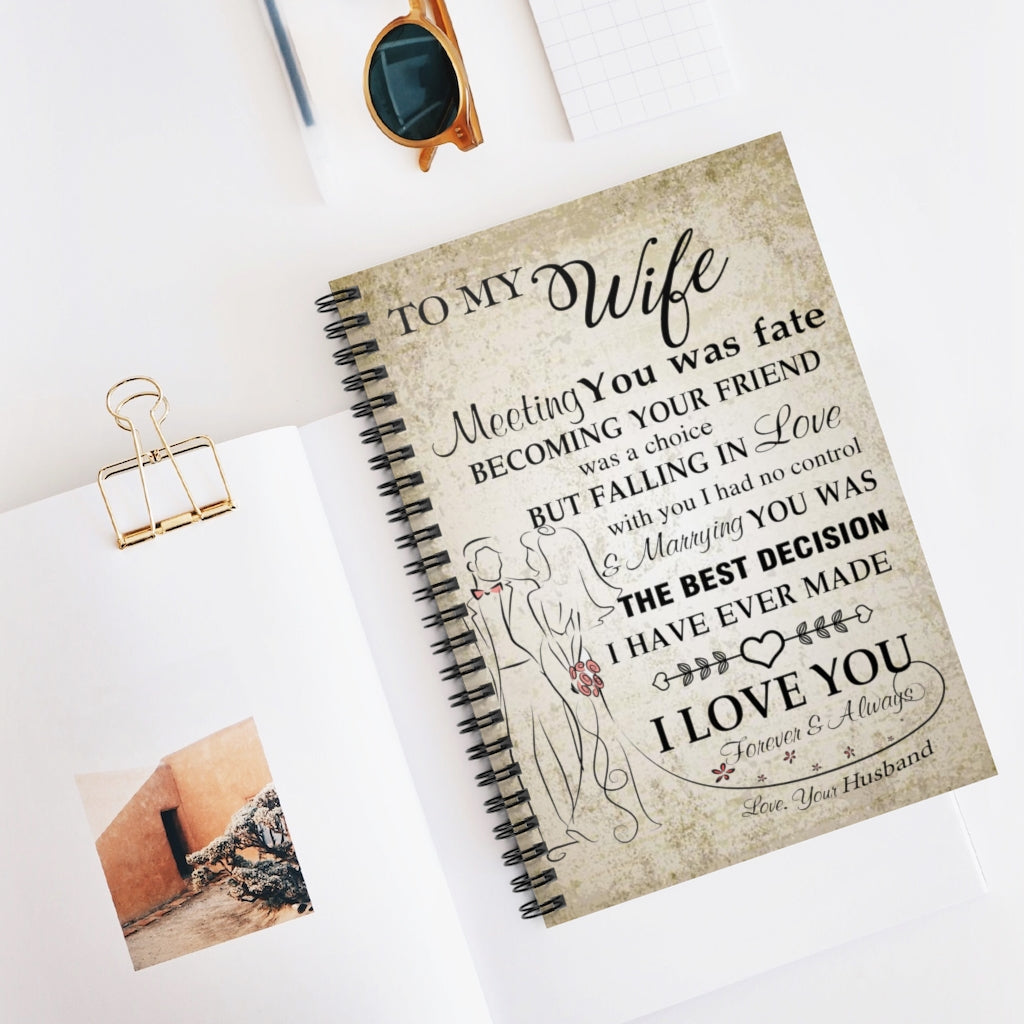 TO MY Wife
Meeting You was fate
BECOMING YOUR FRIEND
was a choice
BUT FALLING IN Love
with you I had no control
& Marrying YOU WAS
THE BEST DECISION
I HAVE EVER MADE
I LOVE YOU
Forever & Always
Love. Your Husband